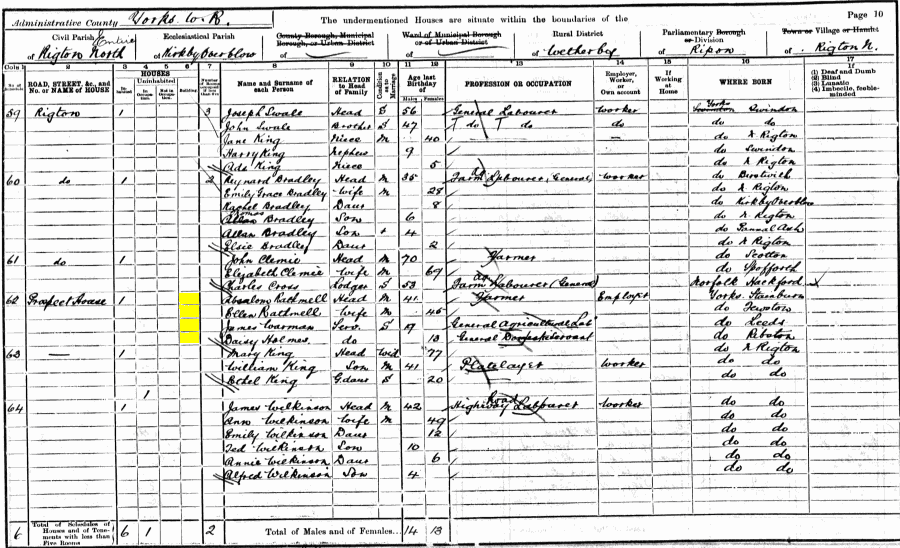 Administrative County Yorks. W.R. The undermentioned Houses are situate within the boundaries of the Page 10
Civil Parish Entire of Rigton North
Ecclesiastical Parish of Kirkby Overblow
County Borough, Municipal Borough, or Urban District of
Ward of Municipal Borough or of Urban District of
Rural District of Wetherby
Parliamentary Borough or Division of Ripon
Town or Village or Hamlet of Rigton N.
Cols 1 2 3 4 5 6 7 8 9 10 11 12 13 14 15 16 17
ROAD, STREET, &c., and No. or NAME of HOUSE
HOUSES
Uninhabited
Building
Name and Surname of each Person
RELATION to Head of Family
Condition as to Marriage
Age last Birthday of
Males Females
PROFESSION OR OCCUPATION
Employer, Worker, or Own account
If Working at Home
WHERE BORN
If
(1) Deaf and Dumb
(2) Blind
(3) Lunatic
(4) Imbecile, feeble-minded
59 Rigton 1 3 Joseph Swale Head S 56 General Labourer Worker Yorks Swindon
John Swale Brother S 47 do do do do
Jane King Niece M 40 — do N. Rigton
Harry King Nephew 9 do Swindon
Ada King Niece 5 do N. Rigton
60 do 1 2 Reynard Bradley Head M 35 Farm Labourer (General) Worker do Birstwith
Emily Grace Bradley Wife M 28 do N. Rigton
Rachel Bradley Daur 8 do Kirkby Overblow
Thomas Bradley Son 6 do N. Rigton
Allan Bradley Son 4 do Pannal Ash
Elsie Bradley Daur 2 do N. Rigton
61 do 1 John Clemie Head M 70 Farmer do Scotton
Elizabeth Clemie Wife M 69 do Spofforth
Charles Cross Lodger S 53 Farm Labourer (General) Norfolk Hackford
62 Prospect House 1 Absalom Rathmell Head M 41 Farmer Employer Yorks. Stainburn
Ellen Rathmell Wife M 45 do Fewston
James Warman Serv. S 19 General Agricultural Lab do Leeds
Daisy Holmes do 13 General Domestic Servant do Ribston
63 — 1 Mary King Head Wid 77 do N. Rigton
William King Son M 41 Platelayer Worker do do
Ethel King G.daur S 20 do do
1
64 1 James Wilkinson Head M 42 Highway Labourer Worker do do
Ann Wilkinson Wife M 49 do do
Emily Wilkinson Daur 12 do do
Ted Wilkinson Son 10 do do
Annie Wilkinson Daur 6 do do
Alfred Wilkinson Son 4 do do
6 Total of Schedules of Houses and of Tenements with less than Five Rooms 6 1 2 Total of Males and of Females... 14 13